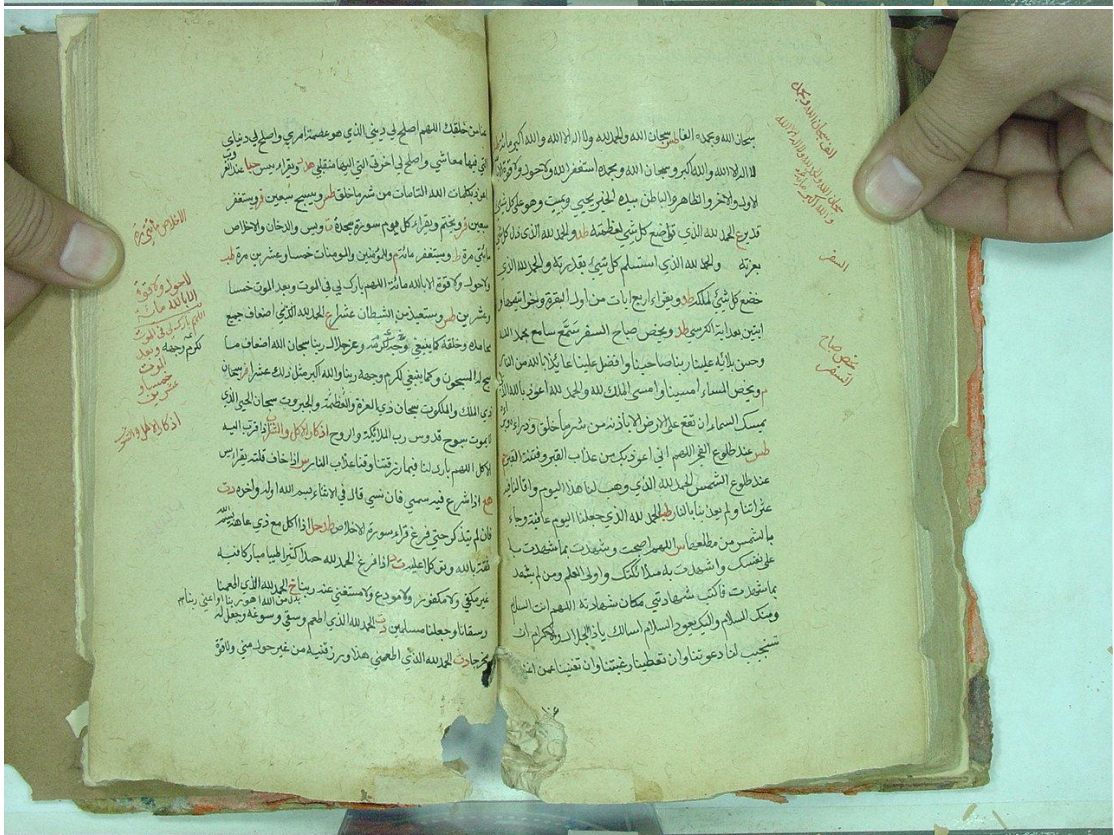 سبحان الله وبحمده الفا طس سبحان الله والحمد لله ولا اله الا الله والله اكبر مائة
لا اله الا الله والله اكبر وسبحان الله وبحمده استغفر الله ولا حول ولا قوة
الاول والاخر والظاهر والباطن بيده الخير يحيي ويميت وهو على كل شئ
قدير ع الحمد لله الذي تواضع كل شئ لعظمته طد والحمد لله الذي ذل كل شئ
بعزته والحمد لله الذي استسلم كل شئ بقدرته والحمد لله الذي
خضع كل شئ لملكه طد ويقراء اربع ايات من اول البقرة وخواتيمها و
ايتين بعد اية الكرسي طد ويخص صباح السفر سمع سامع بحمد الله
وحسن بلائه علينا ربنا صاحبنا وافضل علينا عائذا بالله من النار
م ويخص المساء امسينا وامسى الملك لله والحمد لله اعوذ بالله الذي
يمسك السماء ان تقع على الارض الا باذنه من شر ما خلق وذراء وبرا
طس عند طلوع الفجر اللهم اني اعوذ بك من عذاب القبر وفتنة القبر
عند طلوع الشمس الحمد لله الذي وهب لنا هذا اليوم واقالنا فيه
عثراتنا ولم يعذبنا بالنار طب الحمد لله الذي جعلنا اليوم عافيته وجاء
بالشمس من مطلعها اللهم اصبحت وشهدت بما شهدت به
على نفسك واشهدت به ملائكتك واولي العلم ومن لم يشهد
بما شهدت فاكتب شهادتي مكان شهادته اللهم انت السلام
ومنك السلام واليك يعود السلام اسالك ياذا الجلال والاكرام ان
تستجيب لنا دعوتنا وان تعطينا رغبتنا وان تغنينا عمن
الف سبحان الله وبحمده
سبحان الله والحمد لله ولا اله الا الله
والله اكبر مائة
السفر
يخص صباح
السفر
عنا من خلقك اللهم اصلح لي ديني الذي هو عصمة امري واصلح لي دنياي
التي فيها معاشي واصلح لي اخرتي التي اليها منقلبي ويقراء يس عند
اعوذ بكلمات الله التامات من شر ما خلق طس ويسبح سبعين ويستغفر
سبعين ويختم ويقراء كل يوم سورة سجدة ويس والدخان والاخلاص
مائتي مرة ويستغفر مائة م وللمؤمنين والمومنات خمسا وعشرين مرة طب
ولاحول ولا قوة الا بالله مائة اللهم بارك لي في الموت وبعد الموت خمسا
وعشرين طس ويستعيذ من الشيطان عشرا ع الحمد لله الذي اضعاف جميع
حامده وخلقه كما ينبغي وعز جلاله ربنا سبحان الله اضعاف ما
سبح له المسبحون وكما ينبغي لكرم وجهه ربنا والله اكبر مثل ذلك عشرا سبحان
ذي الملك والملكوت سبحان ذي العزة والعظمة والجبروت سبحان الحي الذي
لا يموت سبوح قدوس رب الملائكة والروح اذكار الاكل والشرب اذا قرب اليه
الاكل اللهم بارك لنا فيما رزقتنا وقنا عذاب النار س اذا خاف قلته يقراء
اذا شرع فيه سمي فان نسي قال في الاثناء بسم الله اوله واخره دت
فان لم يتذكر حتى فرغ قراء سورة الاخلاص اذا اكل مع ذي عاهة
ثقة بالله وتوكلا عليه اذا فرغ الحمد لله حمدا كثيرا طيبا مباركا فيه
غير مكفي ولا مكفور ولا مودع ولا مستغنى عنه ربنا خ الحمد لله الذي اطعمنا
وسقانا وجعلنا مسلمين الحمد لله الذي اطعم وسقى وسوغه وجعل له
مخرجا دت الحمد لله الذي اطعمني هذا ورزقنيه من غير حول مني ولا قوة
الاخلاص
لاحول ولا قوة
الا بالله مائة
اللهم بارك لي في الموت
وبعد
الموت
خمسا و
عشرين
لكرم وجهه
اذكار الاكل والشرب